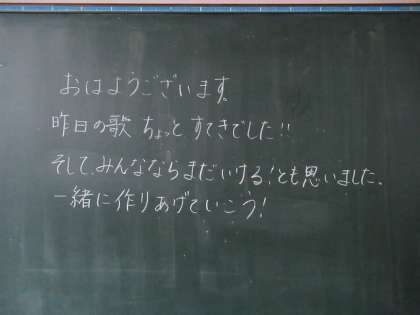 おはようございます。
昨日の歌 ちょっと すてきでした!!
そして、みんなならまだいける!とも思いました。
一緒に作りあげていこう!